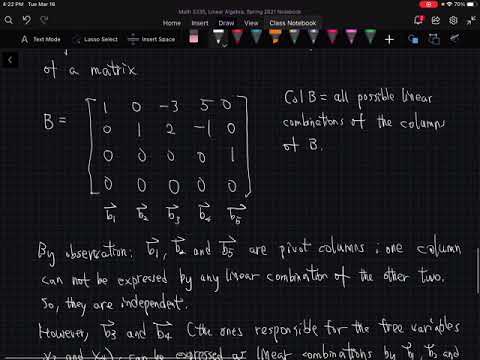 4:22 PM Tue Mar 16
Math 3335, Linear Algebra, Spring 2021 Notebook
70%
Home Insert Draw View Class Notebook
Text Mode Lasso Select Insert Space
of a matrix
B = [ 1 0 -3 5 0
0 1 2 -1 0
0 0 0 0 1
0 0 0 0 0 ]
b1 b2 b3 b4 b5
Col B = all possible linear
combinations of the columns
of B.
By observation: b1, b2 and b5 are pivot columns : one column
can not be expressed by any linear combination of the other two.
So, they are independent.
However, b3 and b4 (the ones responsible for the free variables
x3 and x4), can be expressed as linear combinations by b1, b2 and